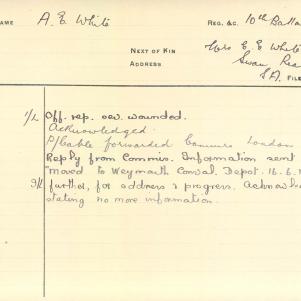 NAME A. E. White REG. &C. 10th Batta
NEXT OF KIN Mrs E. E. White
ADDRESS Swan Rea
S.A. FILE
1/2 Off. rep. sev. wounded.
Acknowledged.
P/Cable forwarded Commrs London
Reply from Commis. Information sent
"Moved to Weymouth Conval. Depot. 16.6.1
9/2 further, for address & progress. Acknowle
stating no more information.